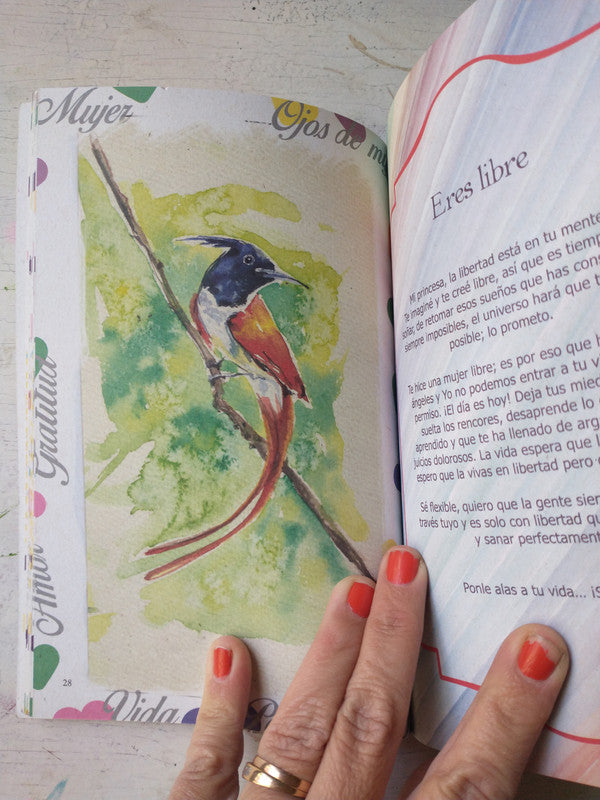 Mujer
Ojos de
Gratitud
Amor
Vida
28
Eres libre
Mi princesa, la libertad está en tu mente
Te imaginé y te creé libre, así que es tiemp
soñar, de retomar esos sueños que has cons
siempre imposibles, el universo hará que t
posible; lo prometo.
Te hice una mujer libre; es por eso que h
ángeles y Yo no podemos entrar a tu v
permiso. ¡El día es hoy! Deja tus mied
suelta los rencores, desaprende lo
aprendido y que te ha llenado de arg
juicios dolorosos. La vida espera que l
espero que la vivas en libertad pero
Sé flexible, quiero que la gente sien
través tuyo y es solo con libertad qu
y sanar perfectament
Ponle alas a tu vida... ¡S